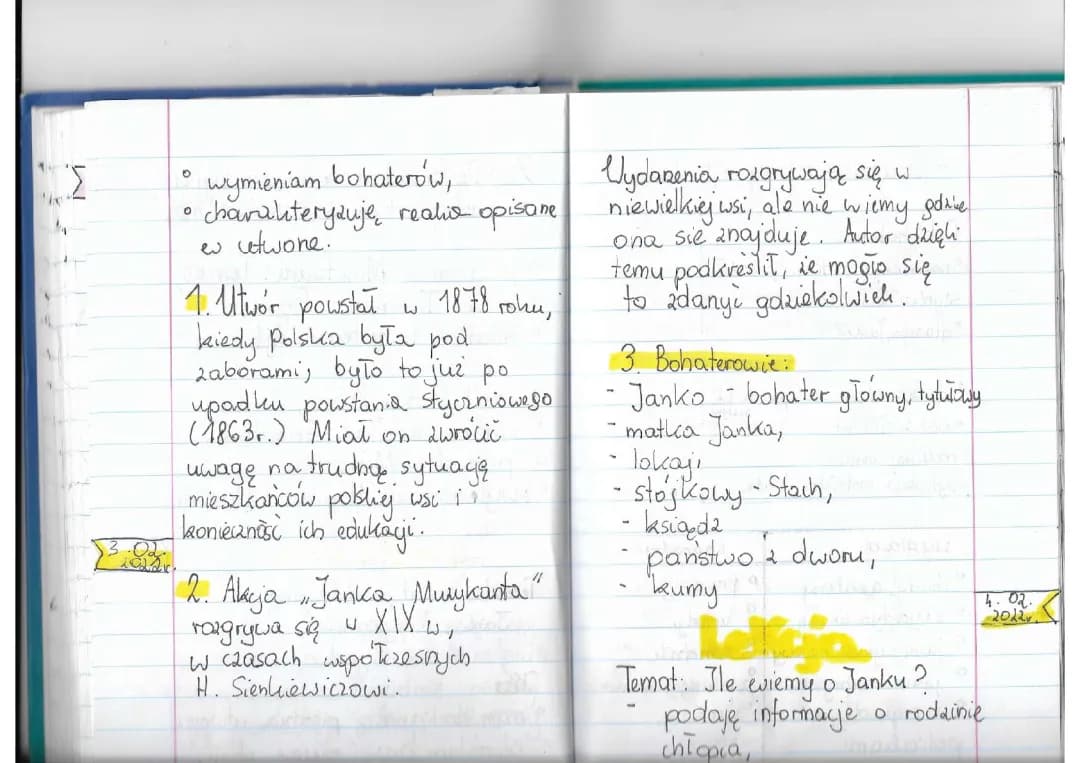 ° wymieniam bohaterów,
° charakteryzuję realia opisane
w utworze.
1. Utwór powstał w 1878 roku,
kiedy Polska była pod
zaborami; było to już po
upadku powstania styczniowego
(1863r.) Miał on zwrócić
uwagę na trudną sytuację
mieszkańców polskiej wsi i
konieczność ich edukacji.
3.02.
2022r.
2. Akcja „Janka Muzykanta"
rozgrywa się w XIX w,
w czasach współczesnych
H. Sienkiewiczowi.
Wydarzenia rozgrywają się w
niewielkiej wsi, ale nie wiemy gdzie
ona się znajduje. Autor dzięki
temu podkreślił, że mogło się
to zdarzyć gdziekolwiek.
3. Bohaterowie:
- Janko - bohater główny, tytułowy
- matka Janka,
- lokaj,
- stójkowy - Stach,
- ksiądz
- państwo z dworu,
- kumy
4.02.
2022r.
Lekcja
Temat: Ile wiemy o Janku?
- podaję informacje o rodzinie
chłopca,